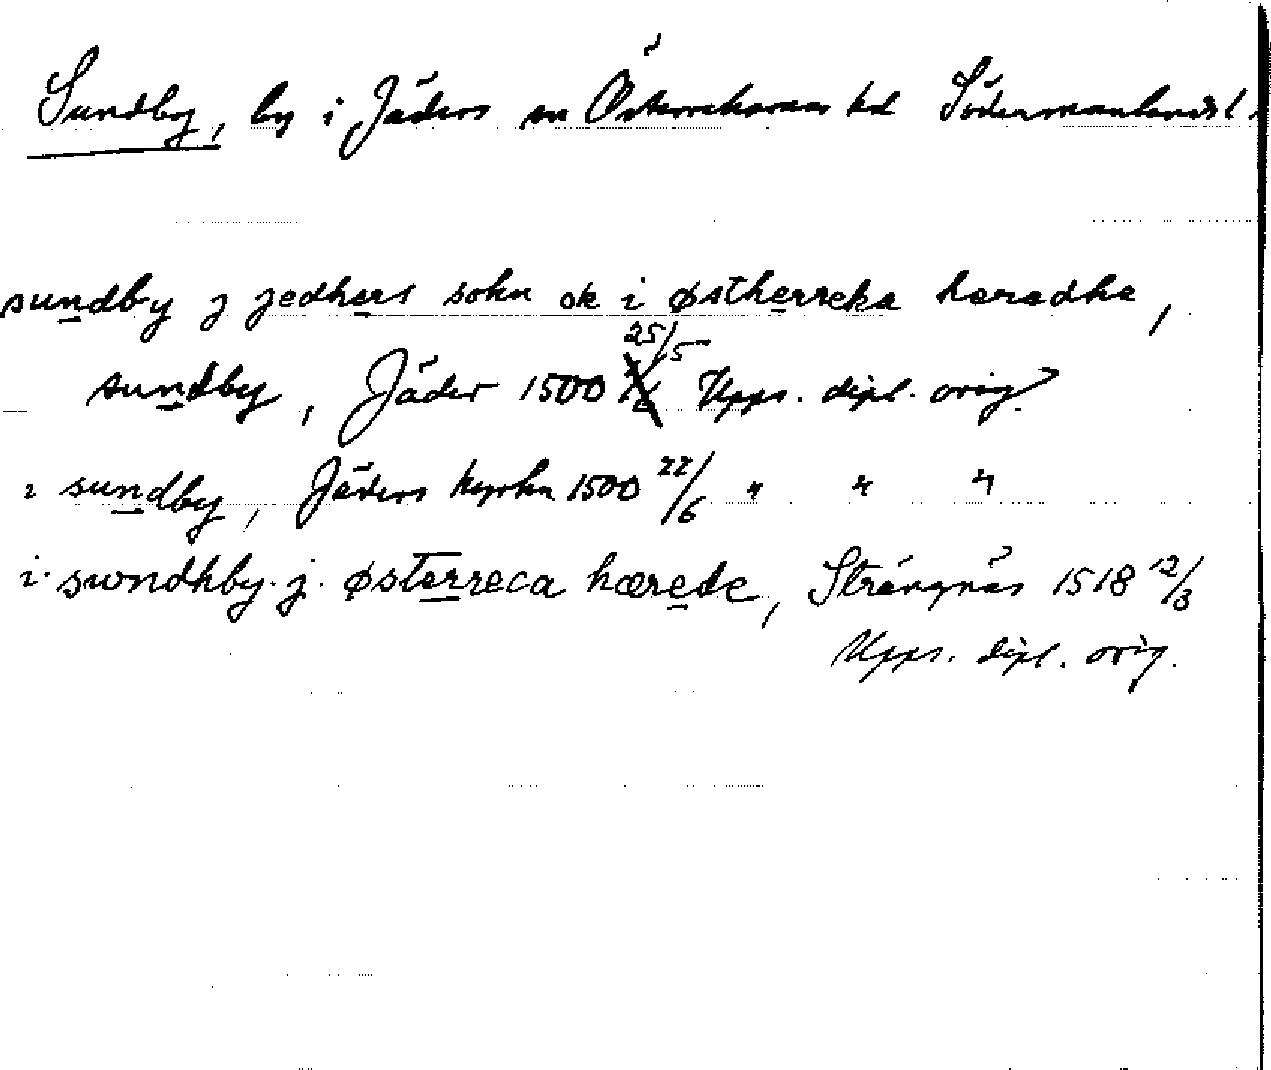 Sundby, by i Jäders sn Österrekarne hd Södermanlands l.
sundby j jedhers sokn ok i østherreka hæradhe,
sundby, Jäder 1500 25/5 Upps. dipl. orig.
i sundby, Jäders kyrka 1500 22/6 " " "
i. swndhby. j. østerreca hærede, Strängnäs 1518 12/3
Upps. dipl. orig.